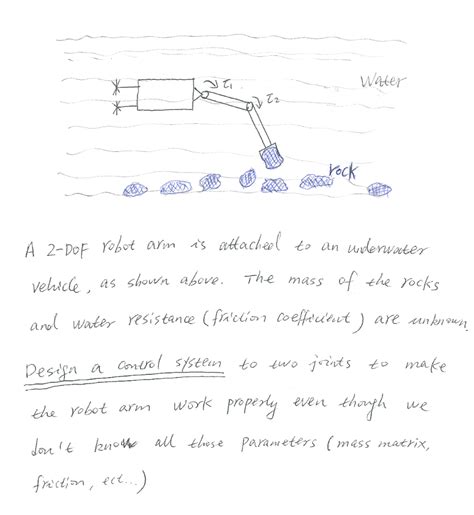 τ1
τ2
Water
rock
A 2-DoF robot arm is attached to an underwater
vehicle, as shown above. The mass of the rocks
and water resistance (friction coefficient) are unknown.
Design a control system to two joints to make
the robot arm work properly even though we
don't know all those parameters (mass matrix,
friction, ect...)